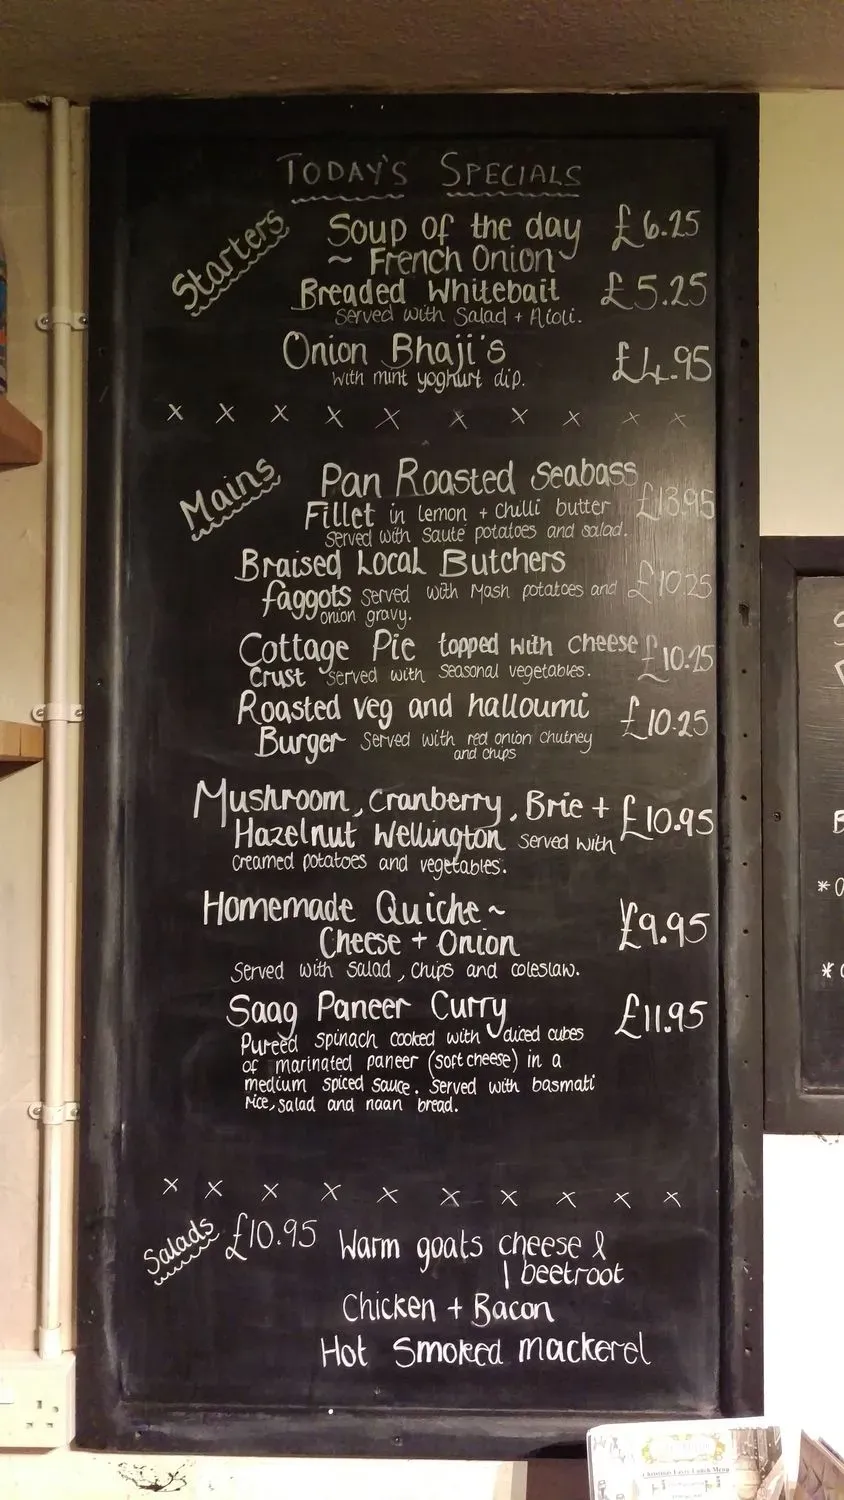 TODAY'S SPECIALS
Starters
Soup of the day £6.25
~ French Onion
Breaded Whitebait £5.25
Served with Salad + Aioli.
Onion Bhaji's £4.95
with mint yoghurt dip.
x x x x x x x x x x
Mains
Pan Roasted Seabass
Fillet in lemon + chilli butter £13.95
Served with sauté potatoes and salad.
Braised Local Butchers
faggots served with Mash potatoes and £10.25
onion gravy.
Cottage Pie topped with cheese £10.25
Crust served with seasonal vegetables.
Roasted veg and halloumi £10.25
Burger Served with red onion chutney
and chips
Mushroom, Cranberry, Brie + £10.95
Hazelnut Wellington served with
creamed potatoes and vegetables.
Homemade Quiche ~ £9.95
Cheese + Onion
Served with salad, chips and coleslaw.
Saag Paneer Curry £11.95
Pureed spinach cooked with diced cubes
of marinated paneer (soft cheese) in a
medium spiced sauce. Served with basmati
rice, salad and naan bread.
x x x x x x x x x x
Salads £10.95 Warm goats cheese &
beetroot
Chicken + Bacon
Hot Smoked mackerel